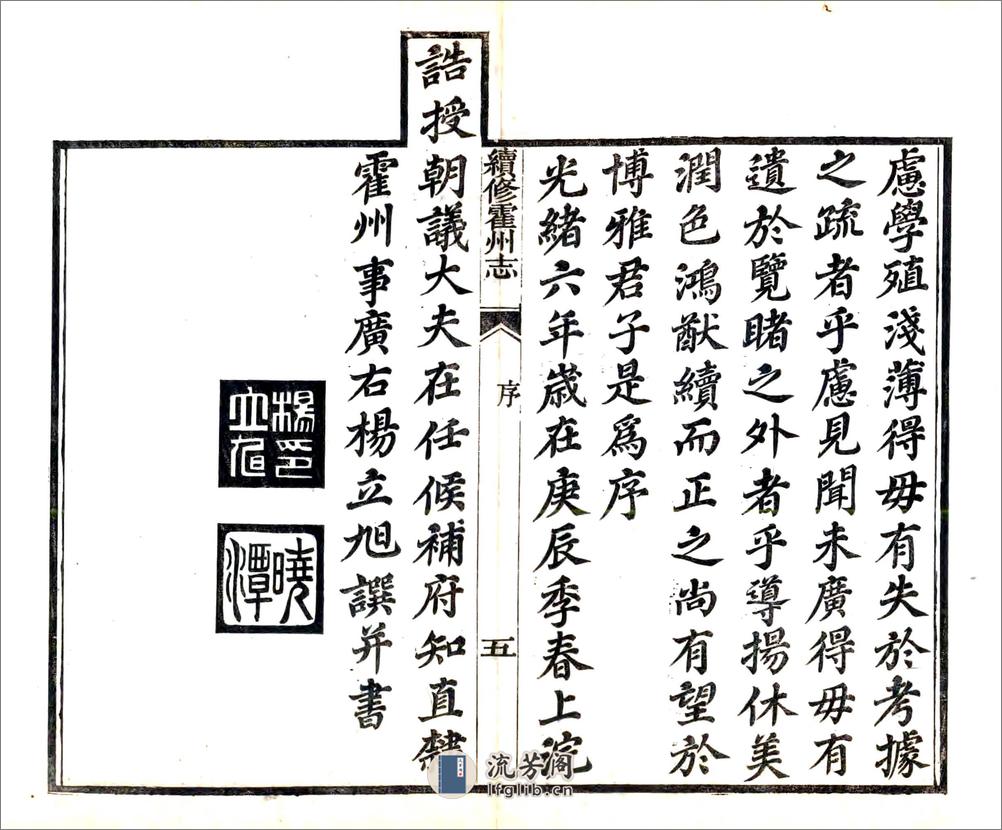 慮學殖淺薄得毋有失於考據
之疏者乎慮見聞未廣得毋有
遺於覽睹之外者乎導揚休美
潤色鴻猷續而正之尚有望於
博雅君子是爲序
光緒六年歲在庚辰季春上浣
續修霍州志
序
五
誥授朝議大夫在任候補府知直隸
霍州事廣右楊立旭譔并書
楊印立旭
曉潭
流芳阁
lfglib.cn